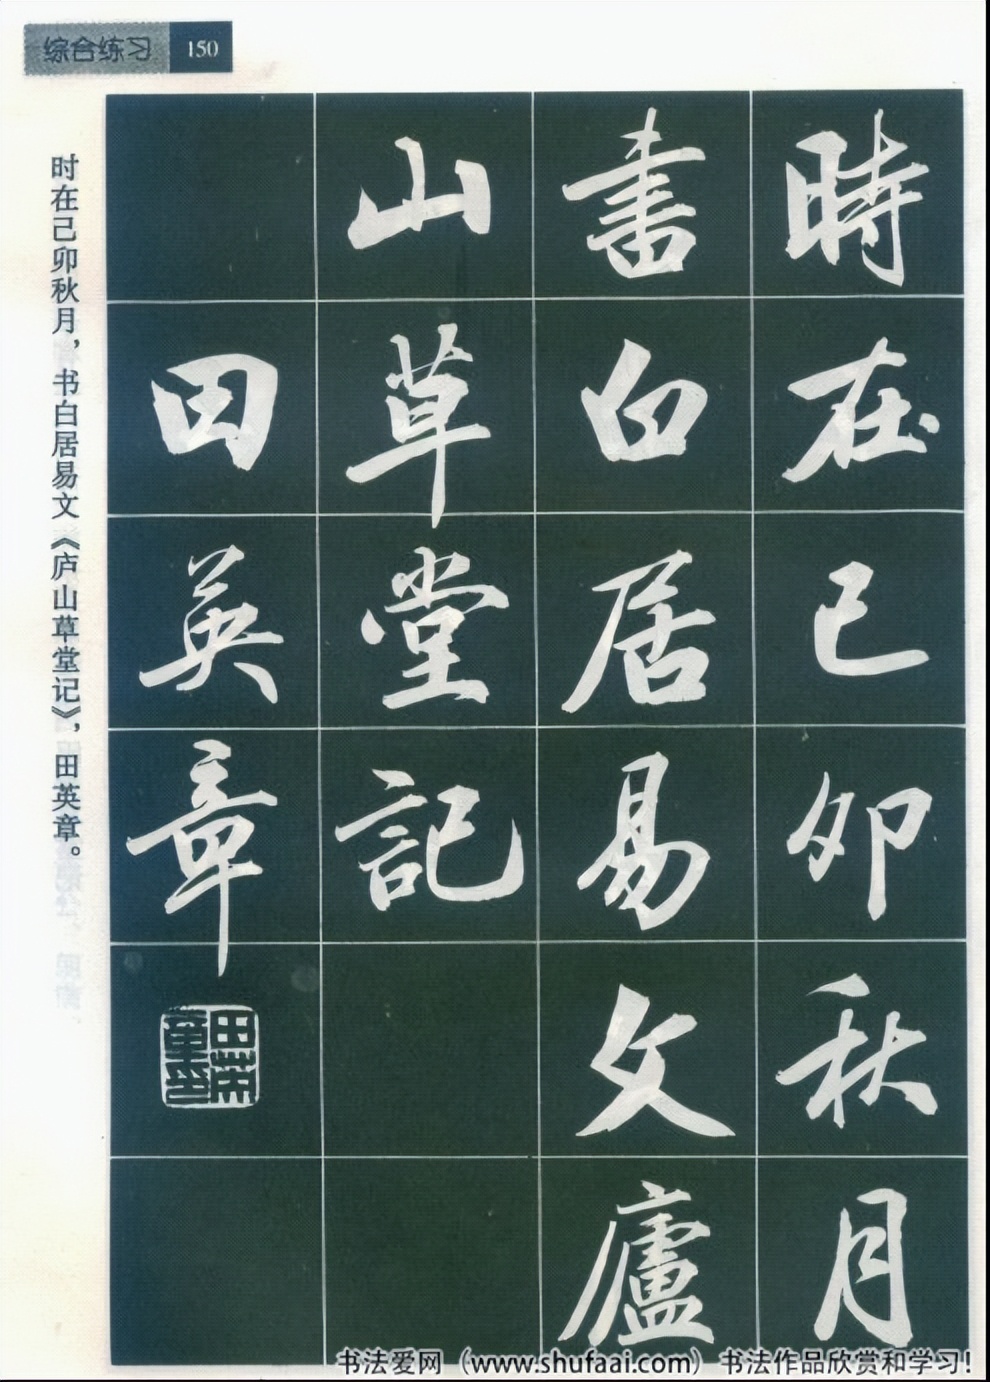 综合练习 150
時在己卯秋月
書白居易文廬
山草堂記
田英章
时在己卯秋月，书白居易文《庐山草堂记》，田英章。
书法爱网（www.shufaai.com）书法作品欣赏和学习！